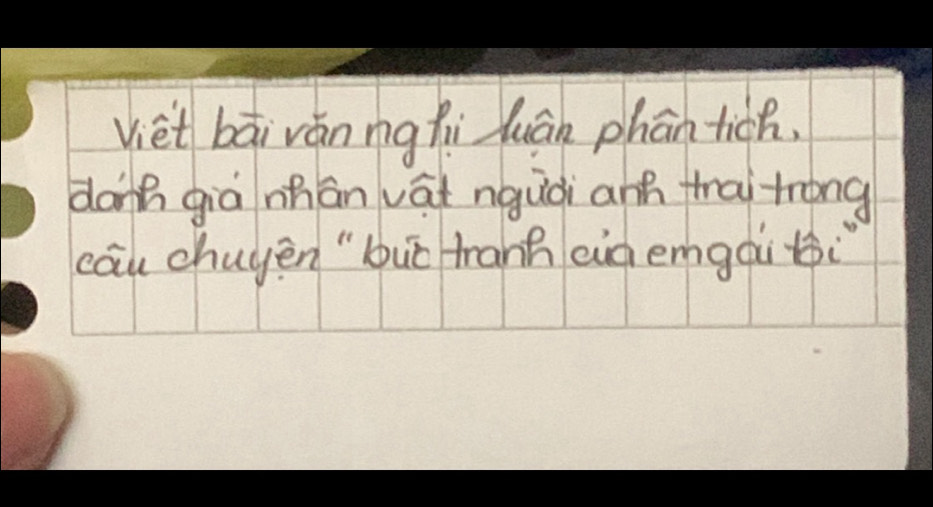 Viết bài văn nghị luận phân tích,
đánh giá nhân vật người anh trai trong
câu chuyện "bức tranh của em gái tôi"